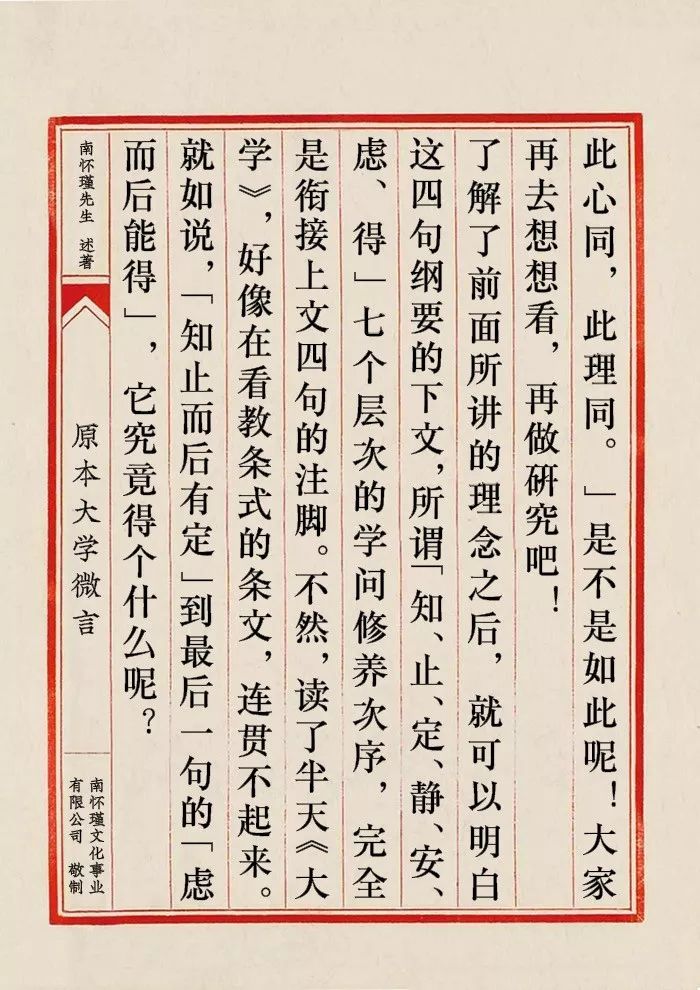 此心同，此理同。」是不是如此呢！大家
再去想想看，再做研究吧！
了解了前面所讲的理念之后，就可以明白
这四句纲要的下文，所谓「知、止、定、静、安、
虑、得」七个层次的学问修养次序，完全
是衔接上文四句的注脚。不然，读了半天《大
学》，好像在看教条式的条文，连贯不起来。
就如说，「知止而后有定」到最后一句的「虑
而后能得」，它究竟得个什么呢？
南怀瑾先生 述著
原本大学微言
南怀瑾文化事业
有限公司 敬制